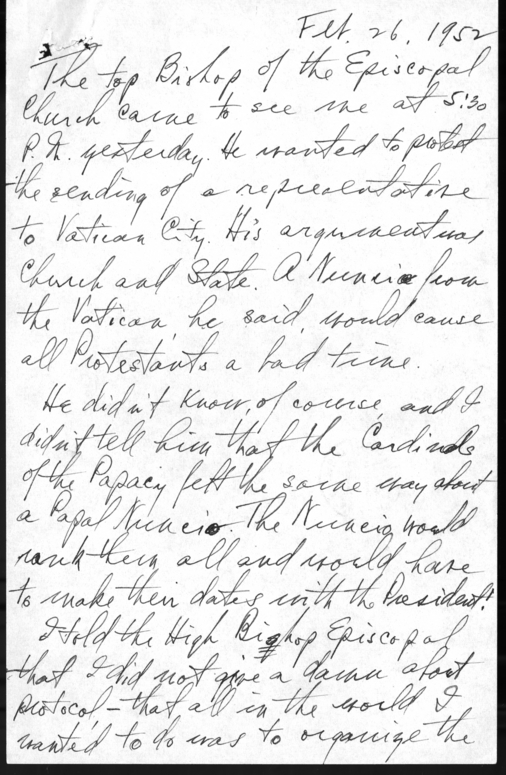 Feb. 26, 1952
The top Bishop of the Episcopal
Church came to see me at 5:30
P.M. yesterday. He wanted to protest
the sending of a representative
to Vatican City. His argument was
Church and State. A Nuncio from
the Vatican, he said, would cause
all Protestants a bad time.
He didn't know, of course, and I
didn't tell him that the Cardinals
of the Papacy felt the same way about
a Papal Nuncio. The Nuncio would
rank them all and would have
to make their dates with the President!
I told the High Bishop Episcopal
that I did not give a damn about
protocol - that all in the world I
wanted to do was to organize the